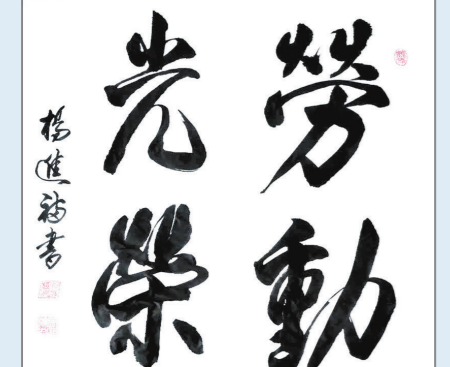 勞動
光榮
楊進福書